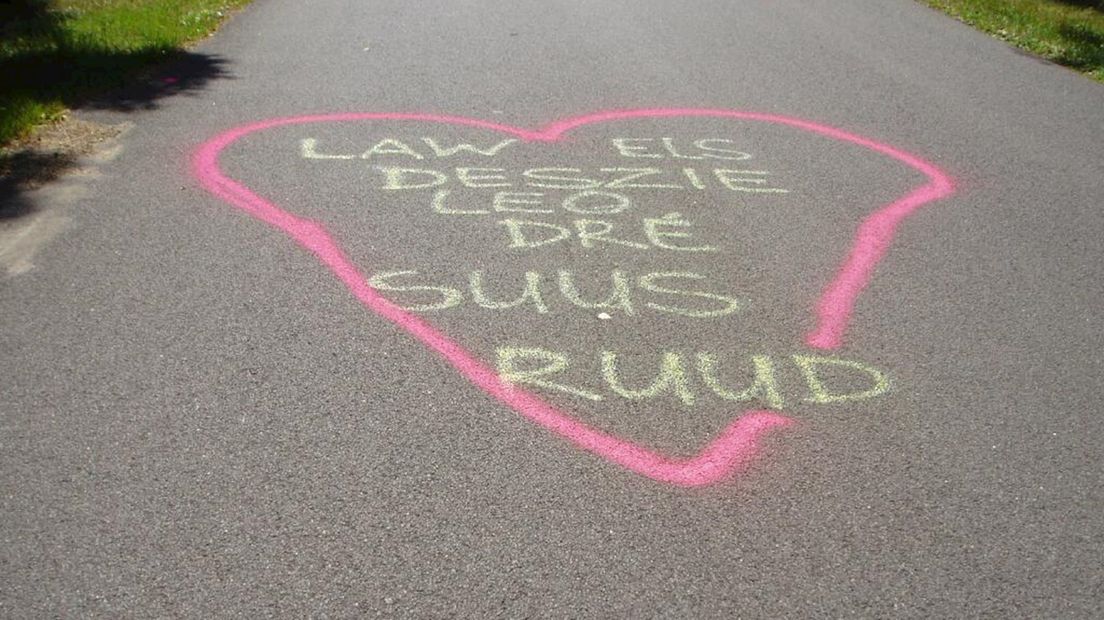 LAW ELS
DESZIE
LEO
DRÉ
SUUS
RUUD